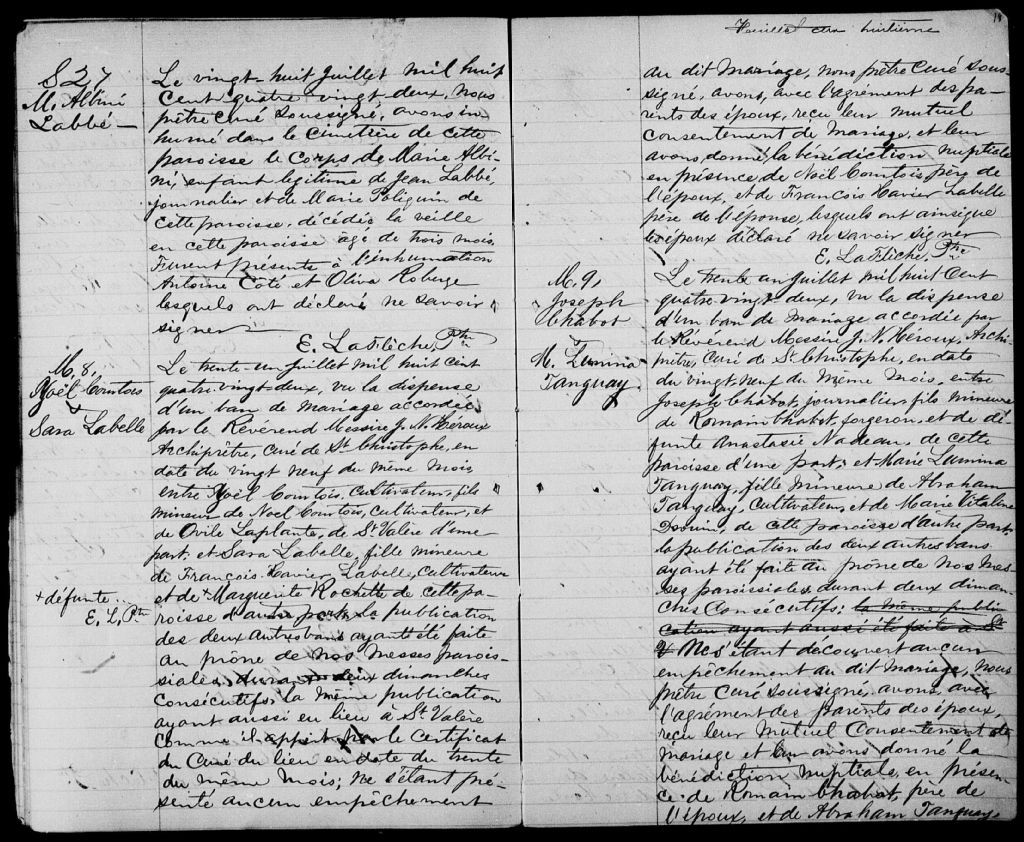 S 27
M. Albini
Labbé —
Le vingt-huit Juillet mil huit
cent quatre vingt-deux, nous
prêtre curé soussigné, avons in
humé dans le cimetière de cette
paroisse le corps de Marie Albi-
ni, enfant légitime de Jean Labbé,
journalier et de Marie Poliquin de
cette paroisse, décédée la veille
en cette paroisse âgé de trois mois.
Furent présents à l'inhumation
Antoine Côté et Oliva Roberge
lesquels ont déclaré ne savoir
signer
E. Lafliche, Ptre
M. 8,
Noël Comtois
&
Sara Labelle
Le trente-un Juillet mil huit cent
quatre-vingt-deux, vu la dispense
d'un ban de mariage accordée
par le Révérend Messire J. N. Héroux
Archiprêtre, curé de St Christophe, en
date du vingt neuf du même mois
entre Noël Comtois, cultivateur, fils
mineur de Noël Comtois, cultivateur, et
de Ovile Laplante, de St Valère d'une
part; et Sara Labelle, fille mineure
de François-Xavier Labelle, cultivateur
et de + Marguerite Rochette de cette pa-
roisse d'autre part. La publication
des deux autres bans ayant été faite
au prône de nos messes parois-
siales, durant deux dimanches
consécutifs; la même publication
ayant aussi eu lieu à St Valère
comme il appert par le certificat
du Curé du lieu en date du trente
du même mois; ne s'étant pré-
senté aucun empêchement
+ défunte..
E. L. Ptre
Feuillet dix huitième
18
au dit mariage, nous prêtre Curé sous-
signé, avons, avec l'agrément des pa-
rents des époux, reçu leur mutuel
consentement de mariage, et leur
avons donné la bénédiction nuptiale
en présence de Noël Comtois père de
l'époux, et de François Xavier Labelle
père de l'épouse, lesquels ont ainsi que
les époux déclaré ne savoir signer
E. Lafliche, Ptre
M. 9,
Joseph
Chabot
&
M. Lumina
Tanguay.
Le trente un Juillet mil huit cent
quatre vingt-deux, vu la dispense
d'un ban de mariage accordée par
le Révérend Messire J. N. Héroux, Archi-
prêtre, Curé de St. Christophe, en date
du vingt neuf du même mois, entre
Joseph Chabot, journalier, fils mineur
de Romain Chabot, forgeron, et de dé-
funte Anastasie Nadeau, de cette
paroisse d'une part; et Marie Lumina
Tanguay, fille mineure de Abraham
Tanguay, cultivateur, et de Marie Vitaline
Drouin, de cette paroisse d'autre part.
La publication des deux autres bans
ayant été faite au prône de nos mes-
ses paroissiales, durant deux diman-
ches consécutifs; la même publi
cation ayant aussi été faite à St
V Ne s'étant découvert aucun
empêchement au dit mariage, nous
prêtre Curé soussigné, avons, avec
l'agrément des parents des époux,
reçu leur mutuel consentement de
mariage et leur avons donné la
bénédiction nuptiale, en présen-
ce de Romain Chabot, père de
l'époux, et de Abraham Tanguay,